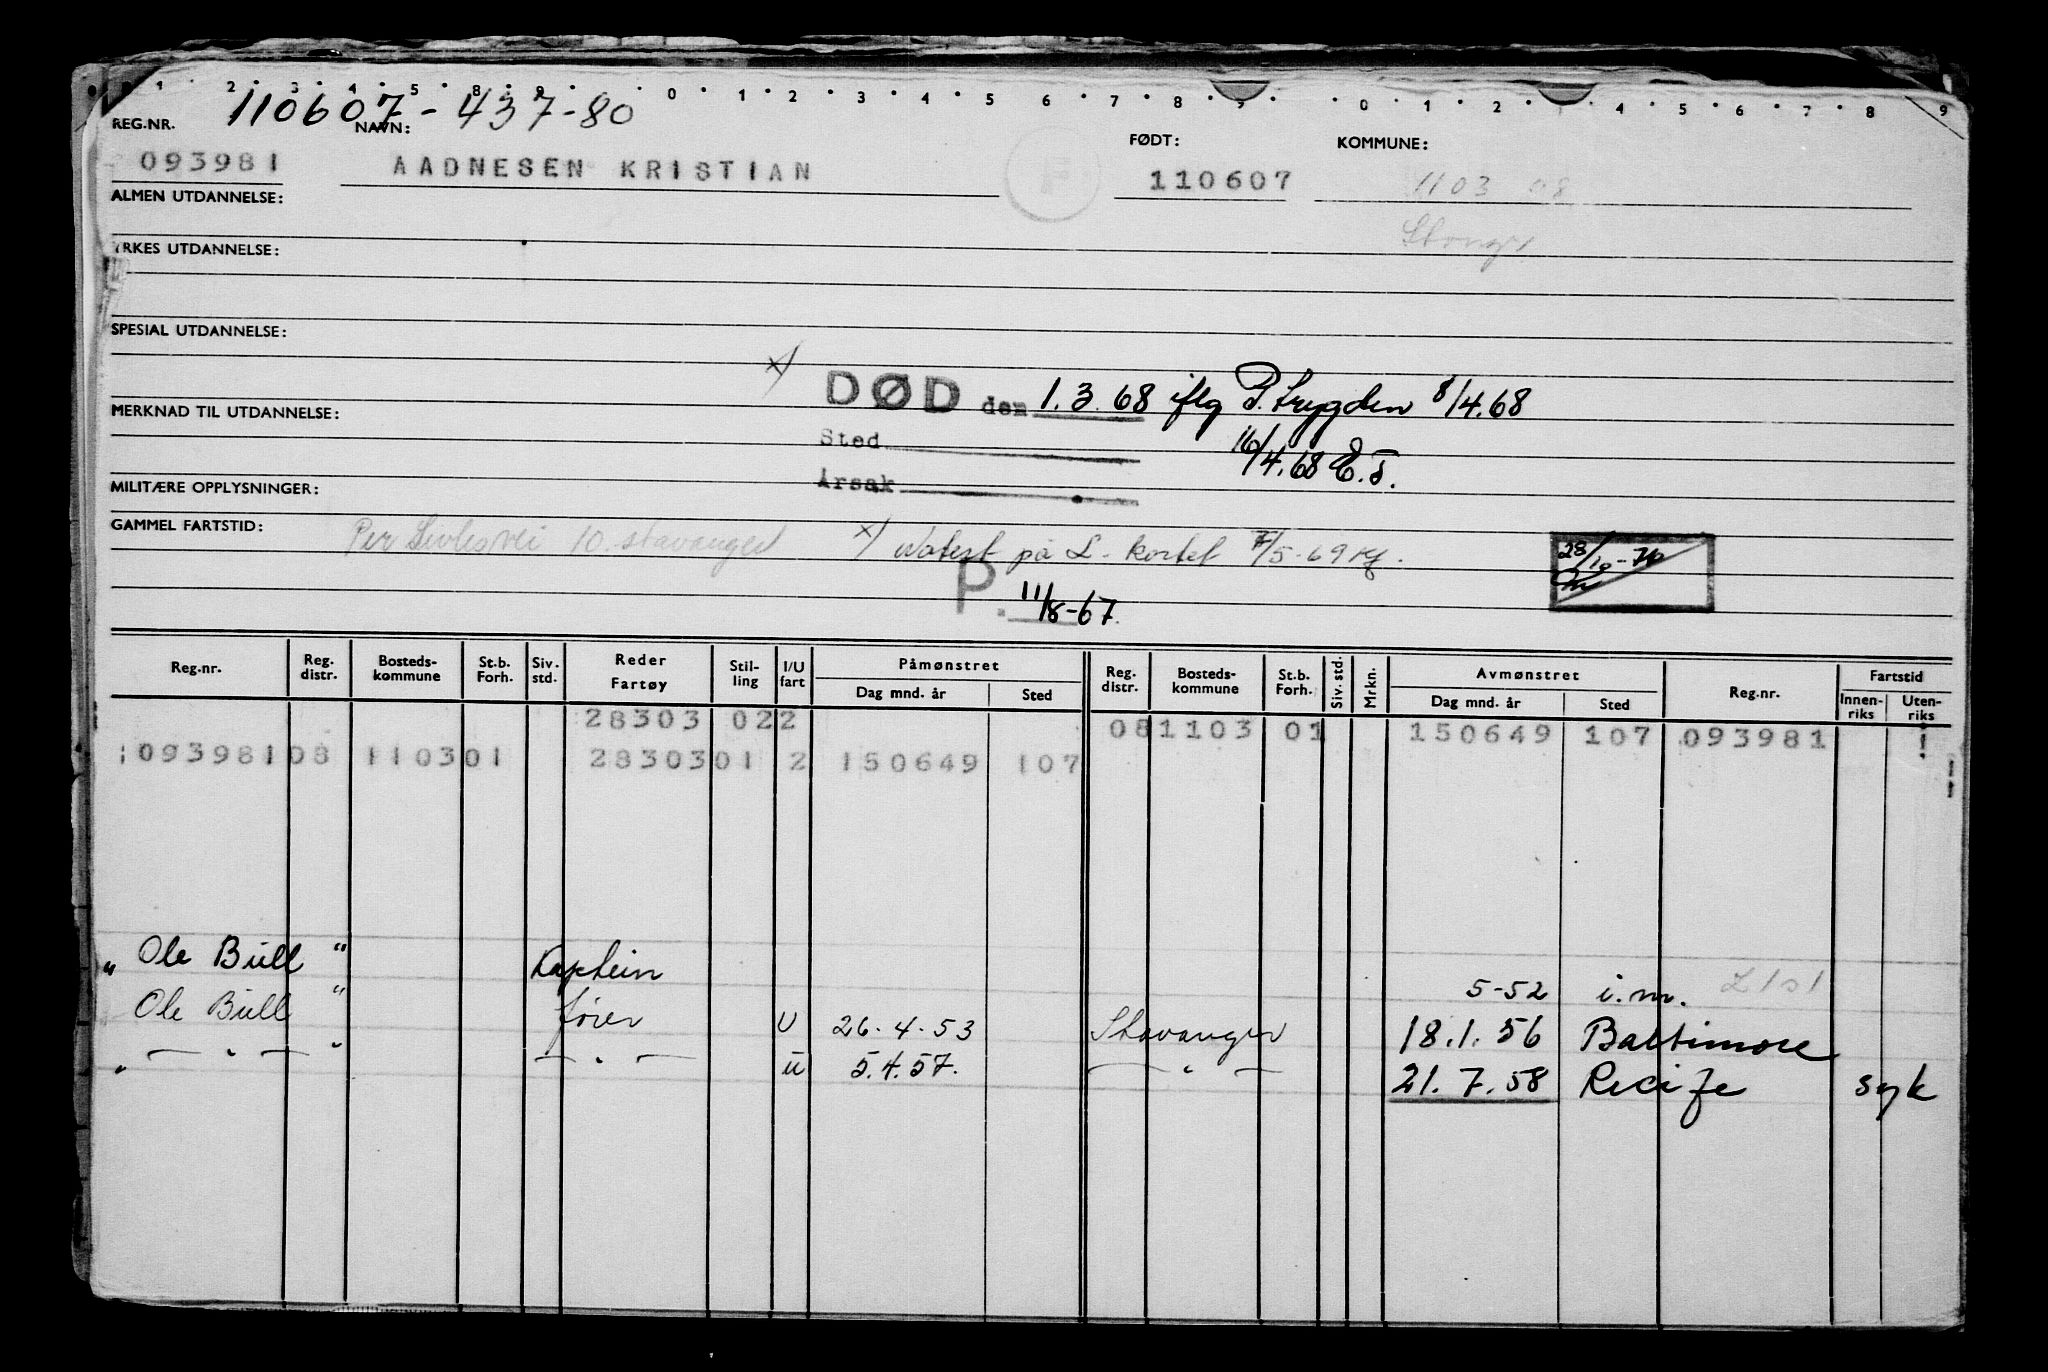 1 2 3 4 5 8 9 0 1 2 3 4 5 6 7 8 9 0 1 2 4 5 6 7 8 9
110607-437-80
REG.NR. NAVN: FØDT: KOMMUNE:
093981 AADNESEN KRISTIAN F 110607 1103 08
ALMEN UTDANNELSE:
YRKES UTDANNELSE:
SPESIAL UTDANNELSE:
x/ DØD den 1.3.68 iflg P.trygden 8/4.68
MERKNAD TIL UTDANNELSE:
Sted 16/4.68 E.T.
MILITÆRE OPPLYSNINGER: Årsak
GAMMEL FARTSTID: Per 10. Stavanger x/ Notert på L-kortet 7/5-69 28/10-70
P. 11/8-67.
Reg.nr. Reg. distr. Bosteds-kommune St.b. Forh. Siv. std. Reder Fartøy Stil-ling I/U fart Påmønstret Dag mnd. år Sted Reg. distr. Bosteds-kommune St.b. Forh. Siv. std. Mrkn. Avmønstret Dag mnd. år Sted Reg.nr. Fartstid Innen-riks Uten-riks
28303 022 081103 01 150649 107 093981
09398108 110301 2830301 2 150649 107
"Ole Bull" Kaptein 5-52 i.m.
Ole Bull" fører U 26-4-53 Stavanger 18.1.56 Baltimore
" — " — " — " — u 5.4.57. — " — 21.7.58 Recife syk